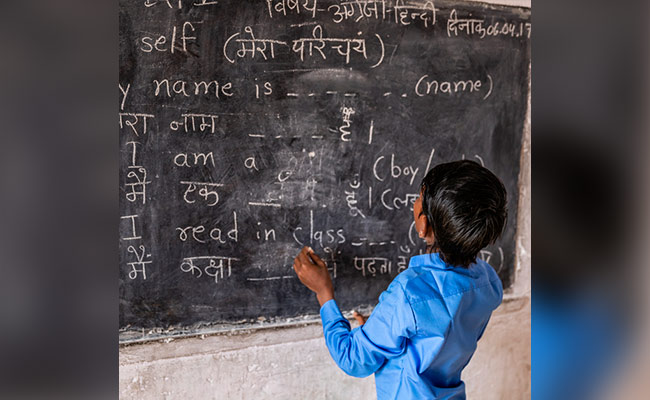 विषय-अंग्रेजी-हिन्दी दिनांक 06.04.17
self (मेरा परिचय)
name is _ _ _ _ _ (name)
नाम _ _ _ _ _ हूँ।
I am a (boy/
मैं एक हूँ। (
I read in class _ _ _ _
मैं कक्षा _ _ में पढ़ता हूँ